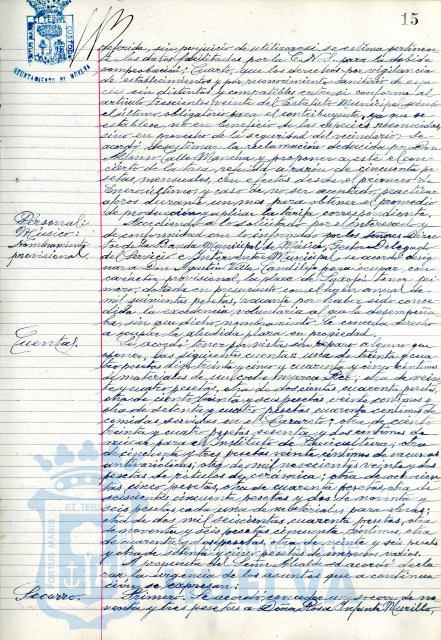 15
AYUNTAMIENTO DE
deforida, sin perjuicio de utilizarse si se estima pertinen-
te los datos facilitados por la C.N.S. para la debida
comprobación; Cuarto, que los derechos por vigilancia
de establecimientos y por reconocimiento sanitario de
son distintos y compatibles entre sí conforme al
artículo trescientos veinte del Estatuto Municipal, siendo
el último obligatorio para el contribuyente, ya que se
establece, no en beneficio de las especies reconocidas
sino en provecho de la seguridad del vecindario. Se
acordó desestimar la reclamación deducida por Don
Alonso Calle Mancha y proponer a este el con-
cierto de la tasa, referida a razón de cincuenta pe-
setas mensuales, con efectos desde el primero de
Enero último y caso de no ser aceptado, practicar
aforos durante un mes para obtener el promedio
de producción y aplicar la tarifa correspondiente.
Personal:
Músico:
Nombramiento
provisional.
Accediendo a lo solicitado por el interesado y
de conformidad con lo informado por los Señores Direc-
tor de la Banda Municipal de Música, Gestor Delegado
del Servicio e Interventor Municipal se acordó desig-
nar a Don Agustín Villa Candileja para ocupar con
carácter provisional, la plaza de Saxofón tenor pri-
mero, dotada en presupuesto con el haber anual de
mil quinientas pesetas, vacante por haber sido conce-
dida la excedencia voluntaria al que la desempeña-
ba, sin que dicho nombramiento le conceda derecho
a ocupar la aludida plaza en propiedad.
Cuentas.
Se acordó tener por vistas sin reparo alguno que
oponer, las siguientes cuentas: una de treinta y cua-
tro pesetas
y materiales de
y cuatro pesetas, otra de doscientas sesenta pesetas,
otra de ciento treinta y seis pesetas veinte céntimos y
otra de setenta y cuatro pesetas cuarenta céntimos de
comidas servidas en el
veinte y cuatro pesetas sesenta y dos céntimos de
para el Instituto de Puericultura; otra
de cincuenta y tres pesetas veinte céntimos de vacunas
antivariólicas; otra de mil novecientas veinte y dos
pesetas de
cinco pesetas, otra de cuarenta pesetas, otra de
seiscientas cincuenta pesetas y dos de noventa y
seis pesetas cada una de materiales para obras;
otra de dos mil seiscientas cuarenta pesetas, otra
de noventa y seis pesetas cincuenta céntimos, otra
de cuarenta y dos pesetas, otra de veinte y seis pesetas
y otra de setenta y cinco pesetas de impresos varios.
A propuesta del Señor Alcalde se acordó decla-
rar la urgencia de los asuntos que a continua-
ción se expresan:
Socorro.
Primero: Se acordó conceder un socorro de no-
venta y tres pesetas a Doña Rosa Infante Murillo,